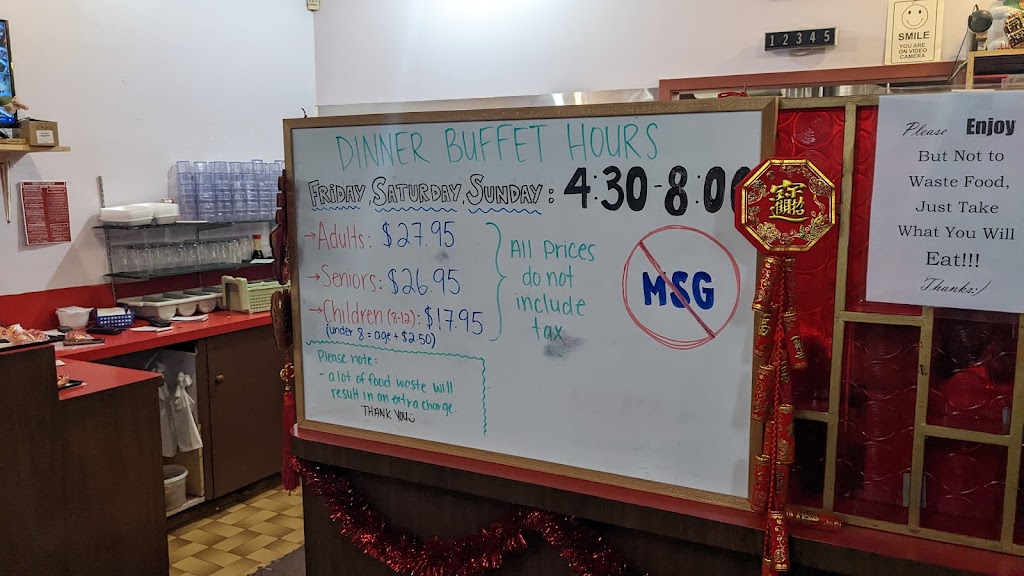 DINNER BUFFET HOURS
FRIDAY, SATURDAY, SUNDAY: 4:30-8:00
→Adults: $27.95
→Seniors: $26.95
→Children (8-12): $17.95
(under 8 = age + $2.50)
All Prices
do not
include
tax
MSG
Please note:
- a lot of food waste will
result in an extra charge.
THANK YOU
12345
SMILE
YOU ARE
ON VIDEO
CAMERA
Please Enjoy
But Not to
Waste Food,
Just Take
What You Will
Eat!!!
Thanks:/
招財進寶